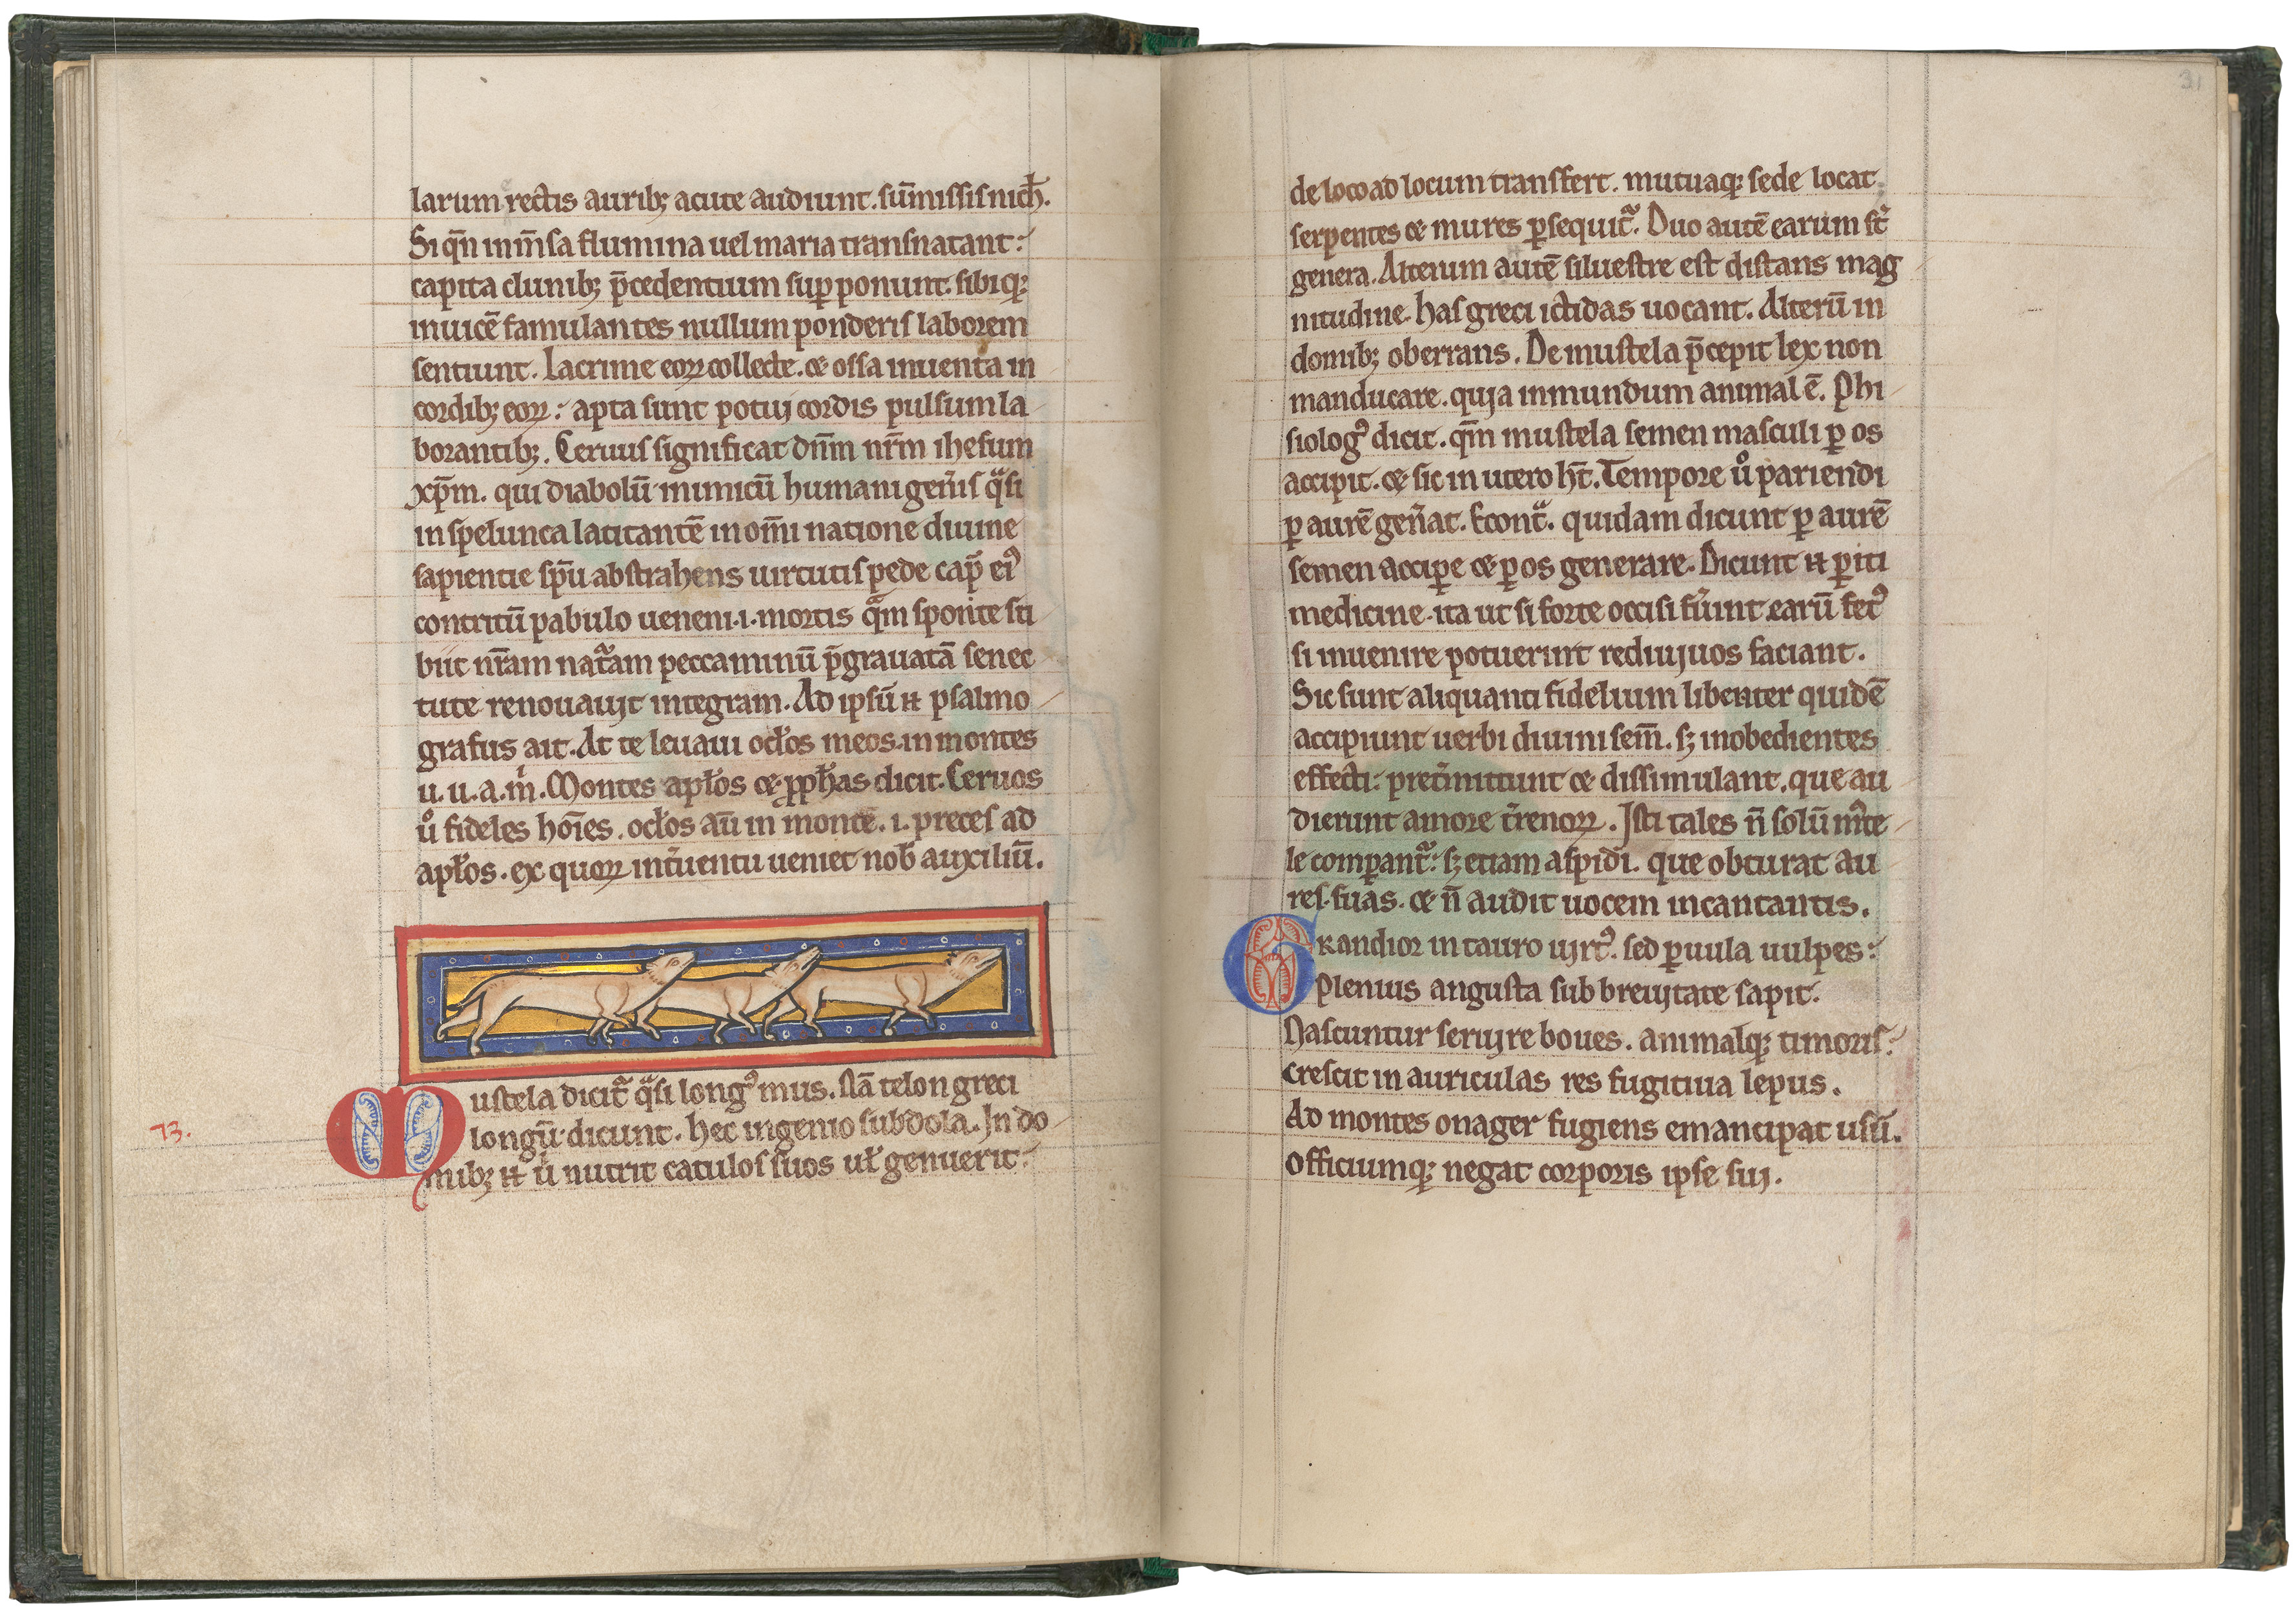 larum rectis aurib; acute audiunt. sum̄issis nich̄.
Si qn̄ inm̄sa flumina uel maria transnatant:
capita clunib; p̄cedentium sup ponunt. sibiq;
inuicē famulantes nullum ponderis laborem
sentiunt. Lacrime eoꝝ collecte. ⁊ ossa inuenta in
cordib; eoꝝ: apta sunt potui cordis pulsum la
borantib;. Ceruus significat dn̄m nr̄m ihesum
xp̄m. qui diabolū inimicū humani gen̄is qͣsi
in spelunca latitantē in om̄i natione diuine
sapientie sp̄u abstrahens uirtutis pede cap̄ ei᾽
contritū pabulo ueneni .i. mortis qͣm sponte sti
biit nr̄am natͣam peccaminū p̄grauatā senec
tute renouauit integram. Ad ipsū & psalmo
grafus ait. At te leuaui ocłos meos in montes
u. u. a. m̄. Montes apłos ⁊ ꝓph̄as dicit. Ceruos
ů fideles hoīes. ocłos aū in monte .i. preces ad
apłos. ex quoꝝ int̄uentu ueniet nob̄ auxiliū.
73.
Mustela dicit᷑ qͣsi long᾽ mus. nā telon greci
longū dicunt. hec ingenio subdola. In do
mib; & ubi nutrit catulos suos uł genuerit:
31
de loco ad locum transfert. mutuaq; sede locat
serpentes ⁊ mures ꝑsequit᷑. Duo autē earum st̄
genera. Alterum autē siluestre est distans mag
nitudine. has greci ictidas uocant. Alterū in
domib; oberrans. De mustela p̄cepit lex non
manducare. quia inmundum animal ē. Phi
siolog᾽ dicit. qm̄ mustela semen masculi ꝑ os
accipit. ⁊ sic in utero ht̄. Tempore ů pariendi
ꝑ aurē gen̄at. Econtͣ. quidam dicunt ꝑ aurē
semen acciꝑe ⁊ ꝑ os generare. Dicunt & ꝑiti
medicine. ita ut si forte occisi fuīnt earū fet᾽
si inuenire potuerint rediuiuos faciant.
Sic sunt aliquanti fidelium libenter quidē
accipiunt uerbi diuini sem̄. s; inobedientes
effecti: pret̄mittunt ⁊ dissimulant. que au
dierunt amore t̄renoꝝ. Isti tales n̄ solū mͥte
le comparant᷑: s; etiam aspidi. que obturat au
res suas. ⁊ n̄ audit uocem incantantis.
Grandior in tauro uirt᾽. sed ꝑuula uulpes:
Plenius angusta sub breuitate sapit.
Nascuntur seruire boues. animalq; timoris:
crescit in auriculas res fugitiua lepus.
Ad montes onager fugiens emancipat usū.
officiumq; negat corporis ipse sui.